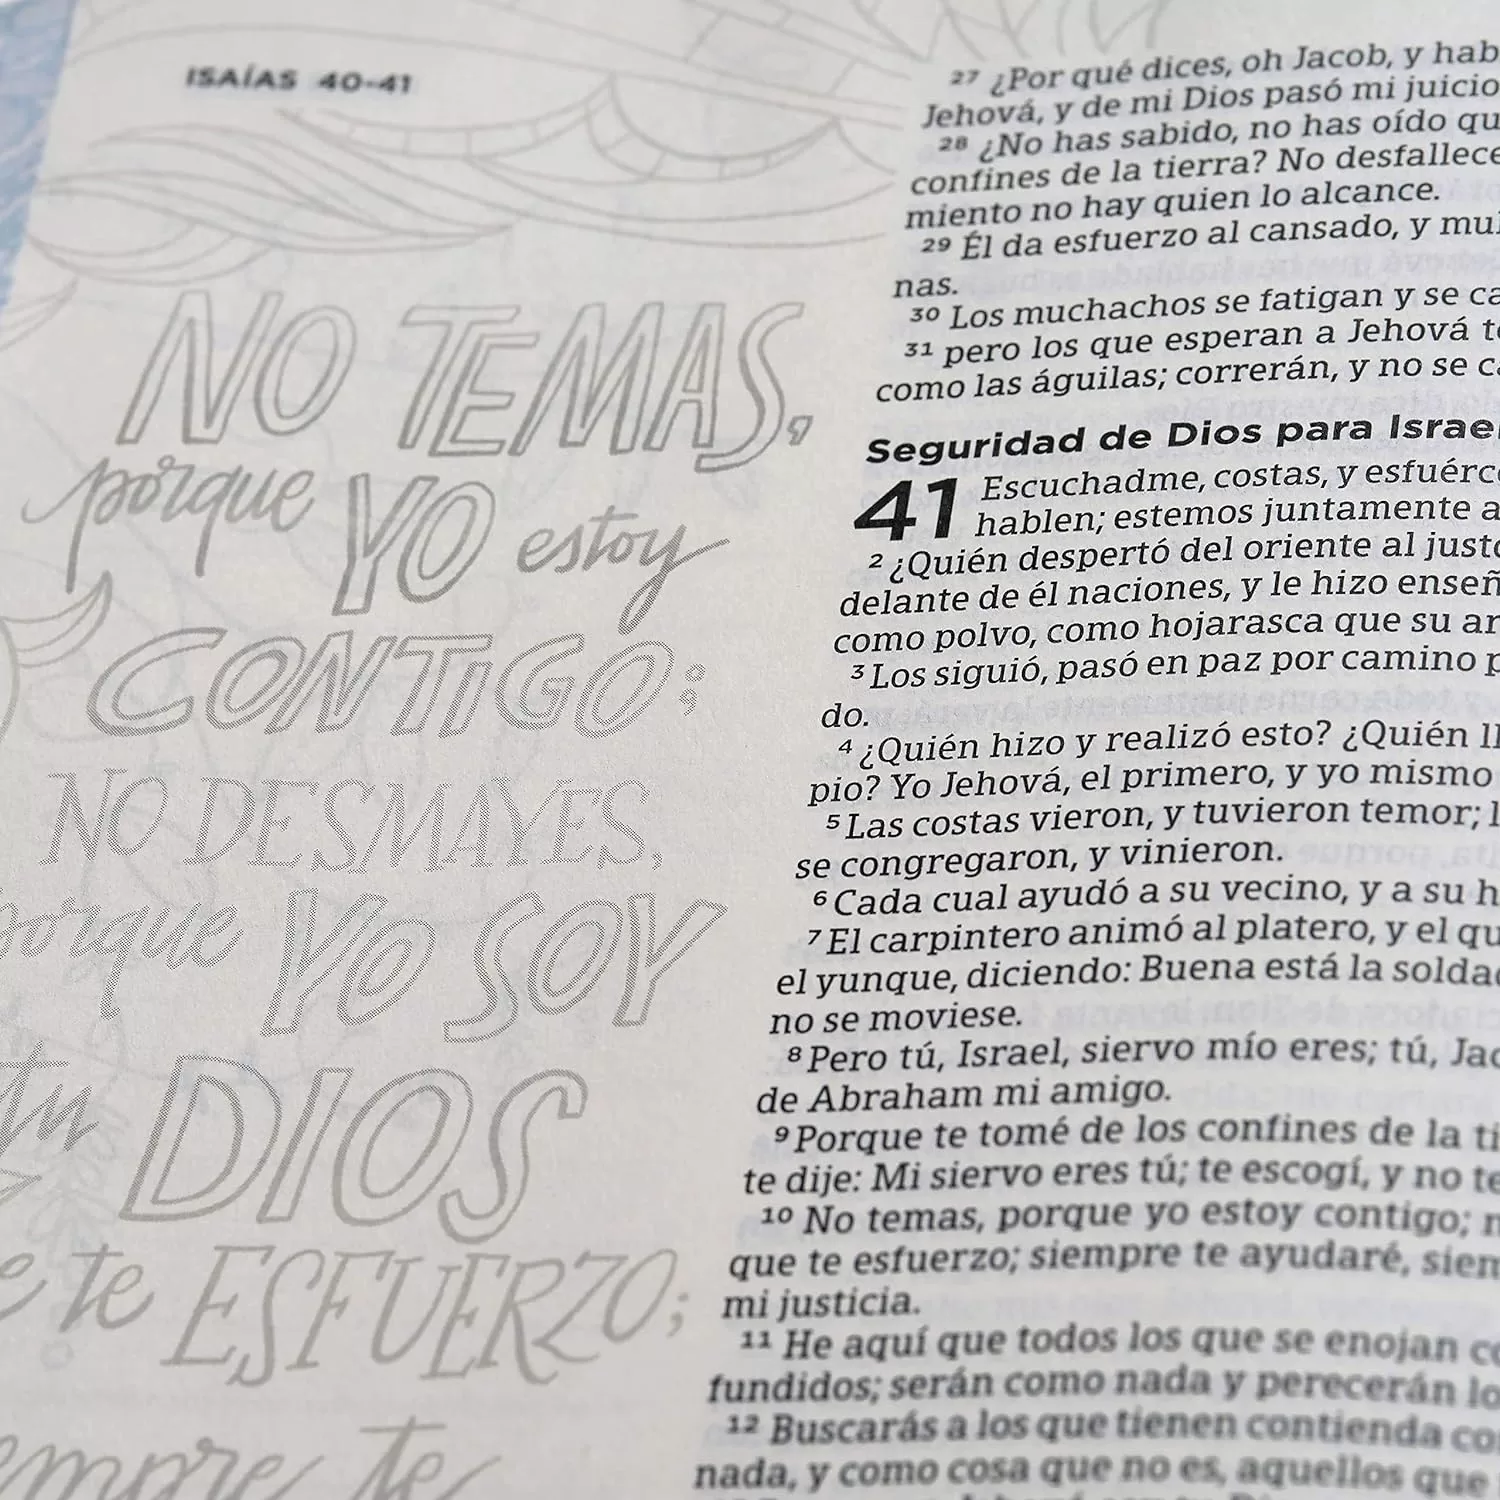 ISAÍAS 40-41
NO TEMAS,
porque YO estoy
CONTIGO;
NO DESMAYES,
porque YO SOY
tu
DIOS
te ESFUERZO;
te
27 ¿Por qué dices, oh Jacob, y hab
Jehová, y de mi Dios pasó mi juicio
28 ¿No has sabido, no has oído qu
confines de la tierra? No desfallece
miento no hay quien lo alcance.
29 Él da esfuerzo al cansado, y mul
nas.
30 Los muchachos se fatigan y se ca
31 pero los que esperan a Jehová t
como las águilas; correrán, y no se c
Seguridad de Dios para Israel
41 Escuchadme, costas, y esfuérc
hablen; estemos juntamente a
2 ¿Quién despertó del oriente al justo
delante de él naciones, y le hizo enseñ
como polvo, como hojarasca que su ar
3 Los siguió, pasó en paz por camino p
do.
4 ¿Quién hizo y realizó esto? ¿Quién ll
pio? Yo Jehová, el primero, y yo mismo
5 Las costas vieron, y tuvieron temor; l
se congregaron, y vinieron.
6 Cada cual ayudó a su vecino, y a su h
7 El carpintero animó al platero, y el qu
el yunque, diciendo: Buena está la soldad
no se moviese.
8 Pero tú, Israel, siervo mío eres; tú, Jac
de Abraham mi amigo.
9 Porque te tomé de los confines de la ti
te dije: Mi siervo eres tú; te escogí, y no te
10 No temas, porque yo estoy contigo; n
que te esfuerzo; siempre te ayudaré, siem
mi justicia.
11 He aquí que todos los que se enojan co
fundidos; serán como nada y perecerán lo
12 Buscarás a los que tienen contienda co
nada, y como cosa que no es, aquellos que